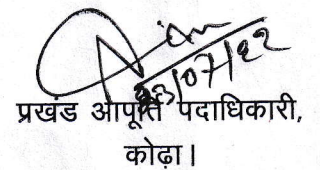 23/07/22
प्रखंड आपूर्ति पदाधिकारी,
कोढ़ा।